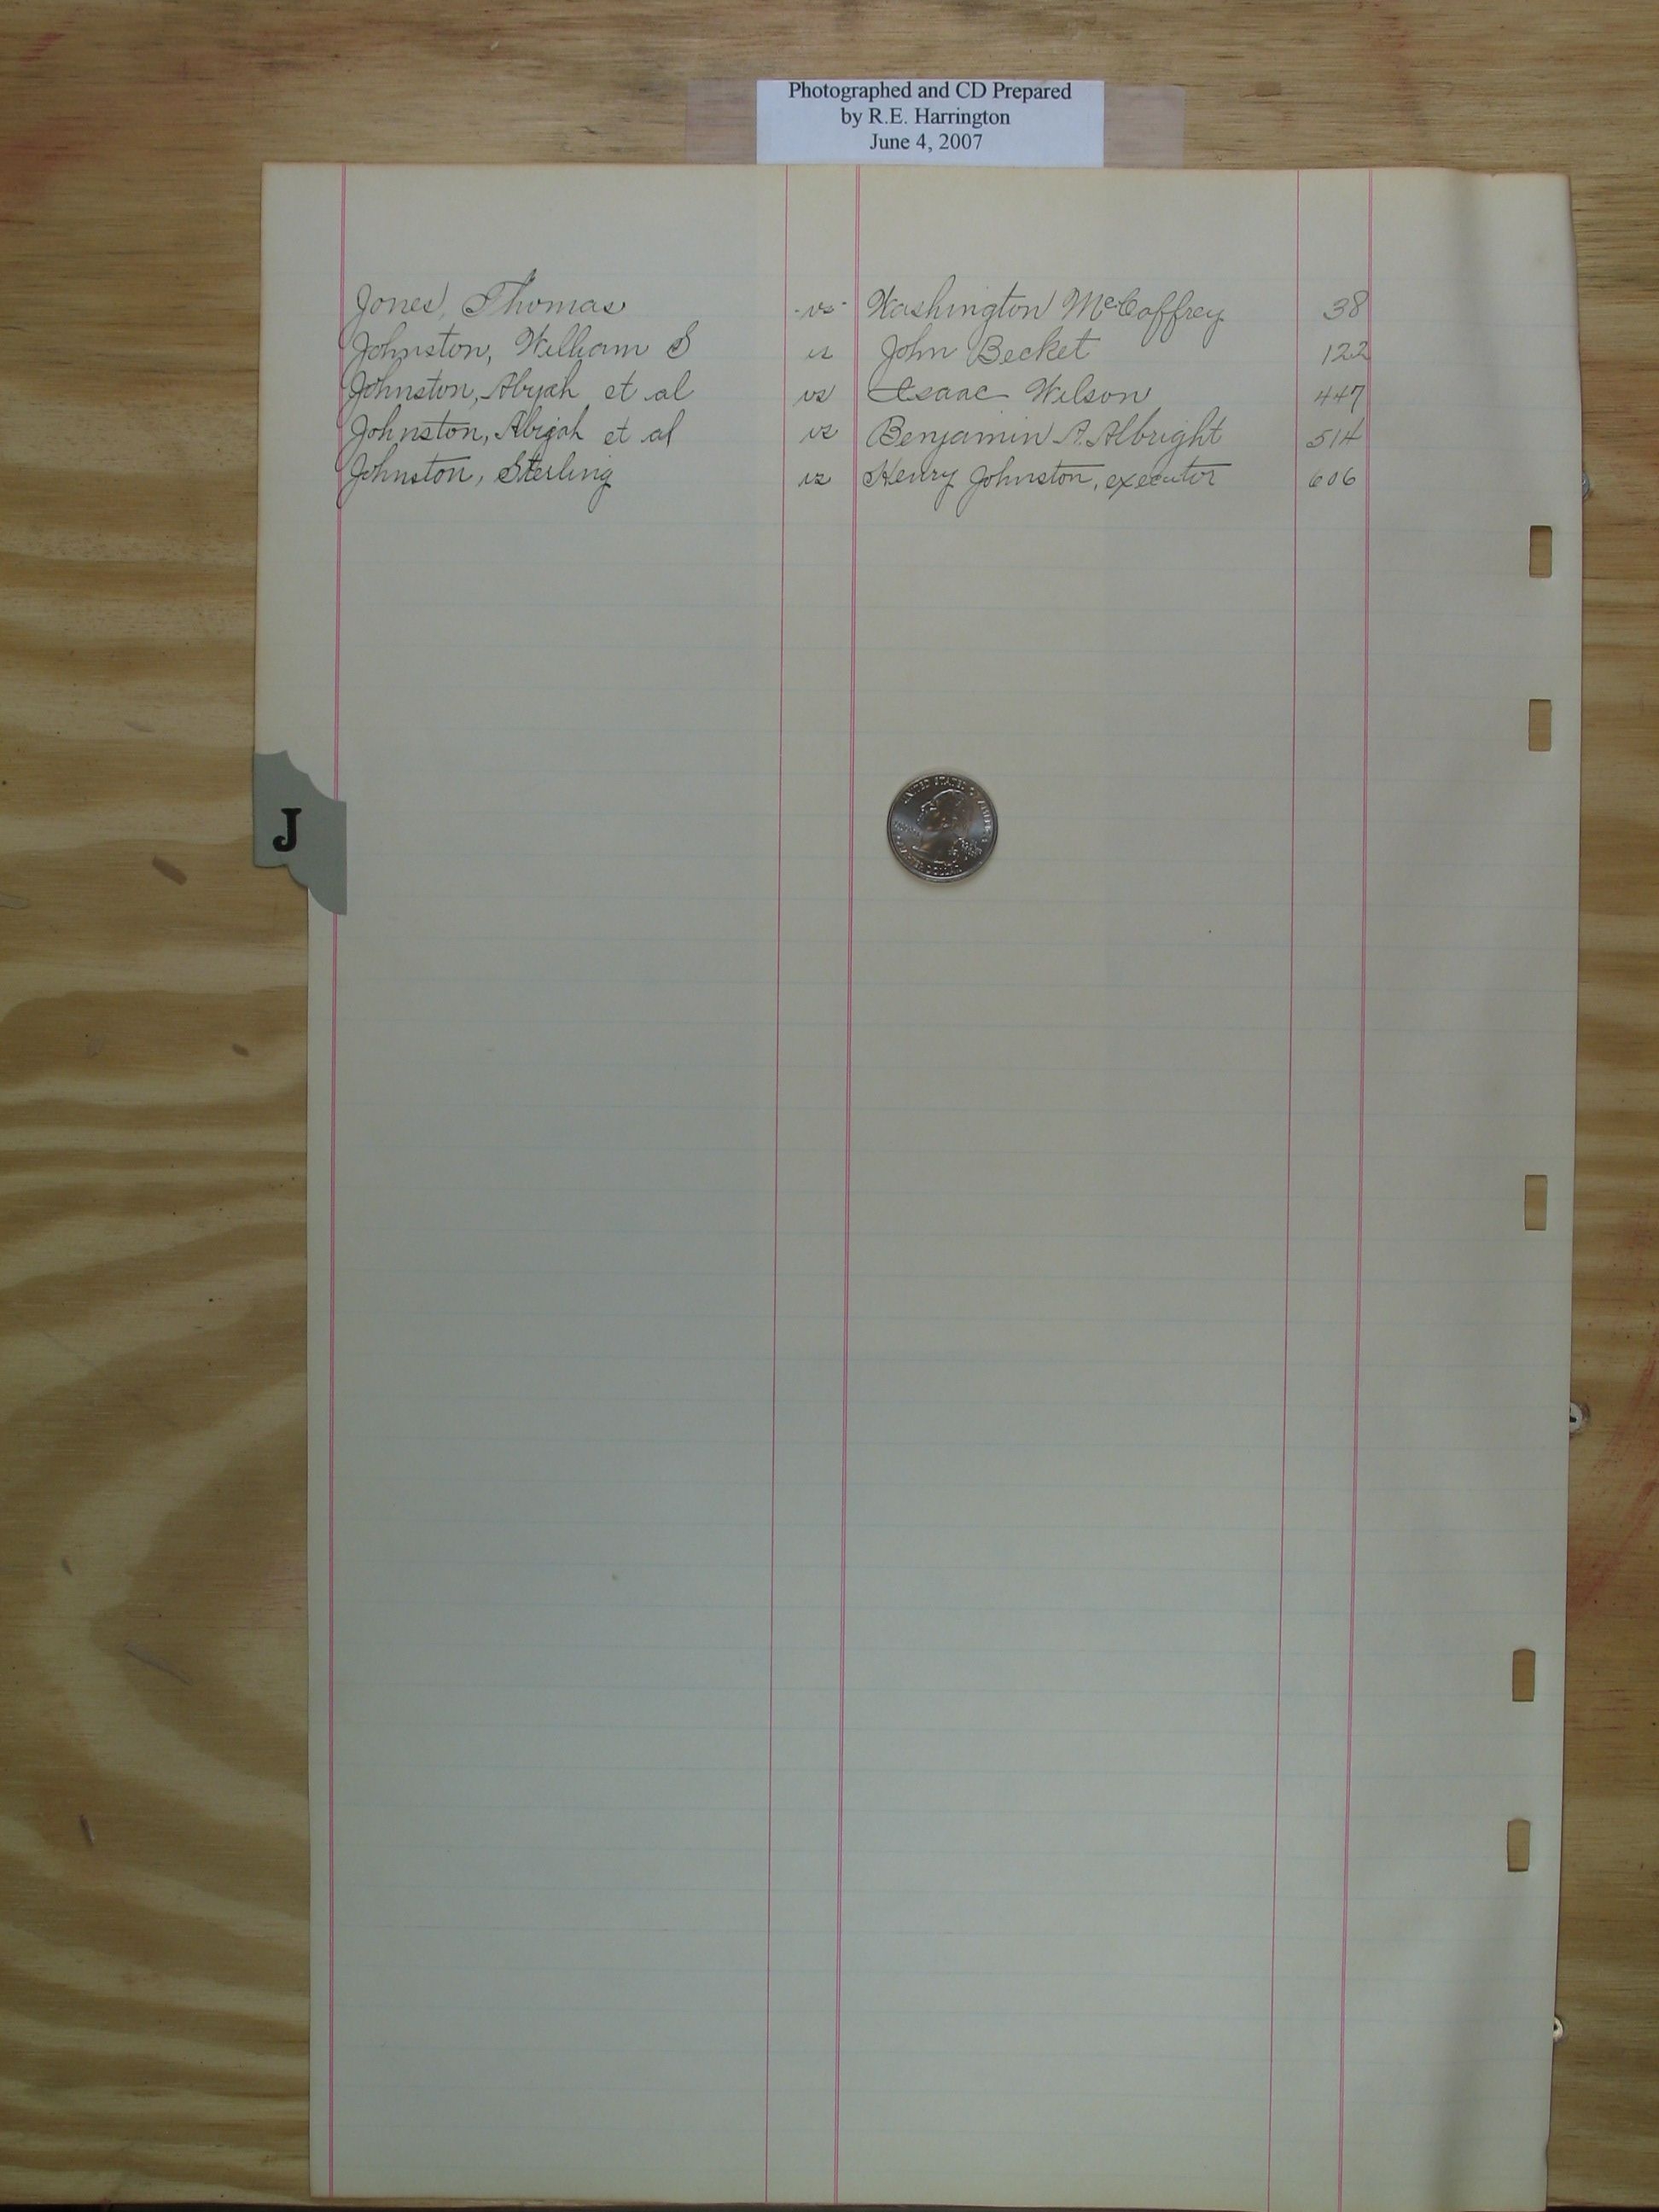 Photographed and CD Prepared
by R.E. Harrington
June 4, 2007
Jones, Thomas -vs- Washington McCaffrey 38
Johnston, William S vs John Becket 122
Johnston, Abijah et al vs Isaac Wilson 447
Johnston, Abijah et al vs Benjamin A. Albright 514
Johnston, Sterling vs Henry Johnston, executor 606
J
UNITED STATES OF AMERICA
QUARTER DOLLAR